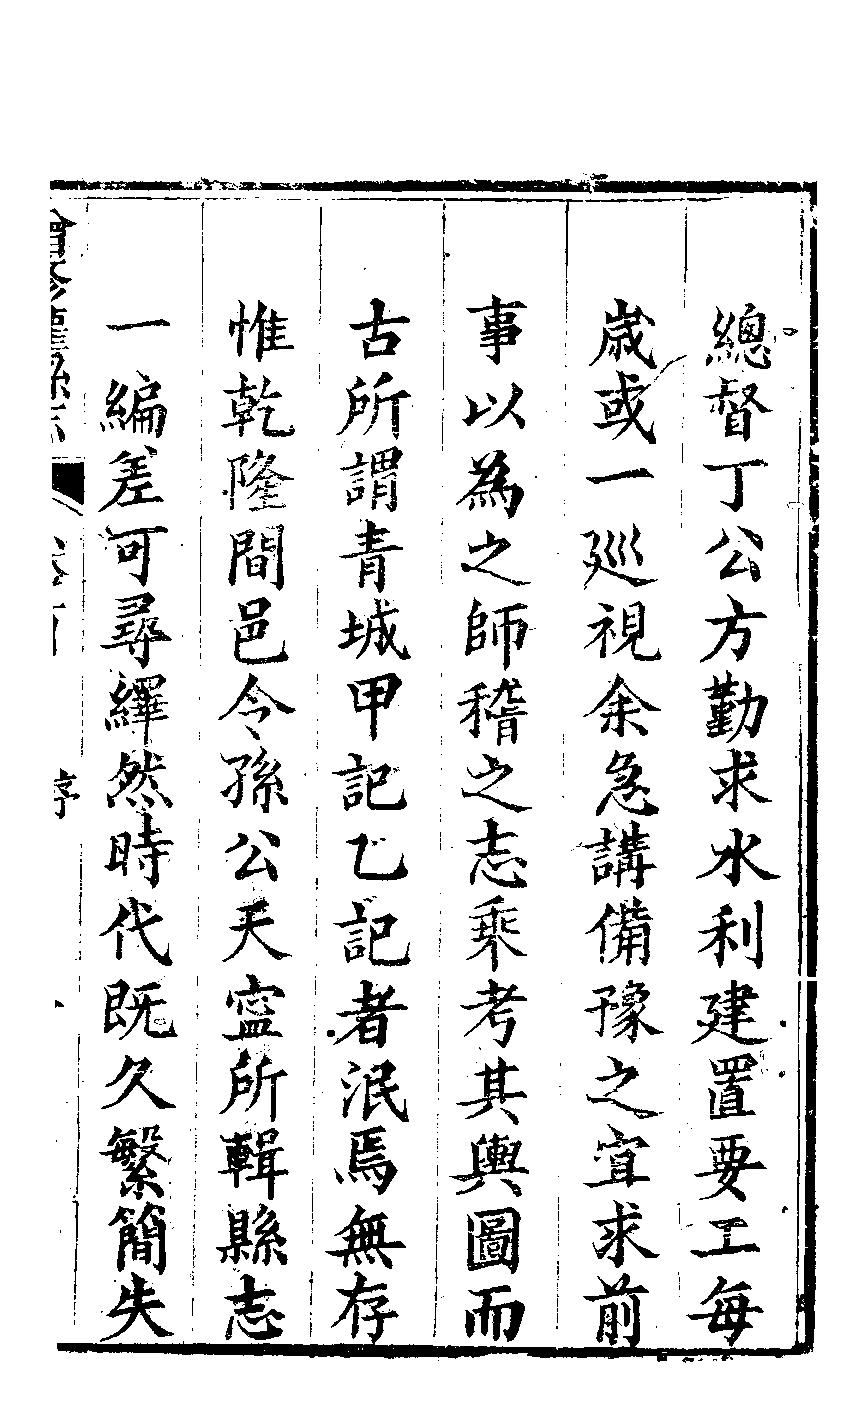 總督丁公方勤求水利建置要工每
歲或一廵視余急講備豫之宜求前
事以為之師稽之志乘考其輿圖而
古所謂青城甲記乙記者泯焉無存
惟乾隆間邑令孫公天寧所輯縣志
一編差可尋繹然時代既久繁簡失
增修灌縣志
卷首
序